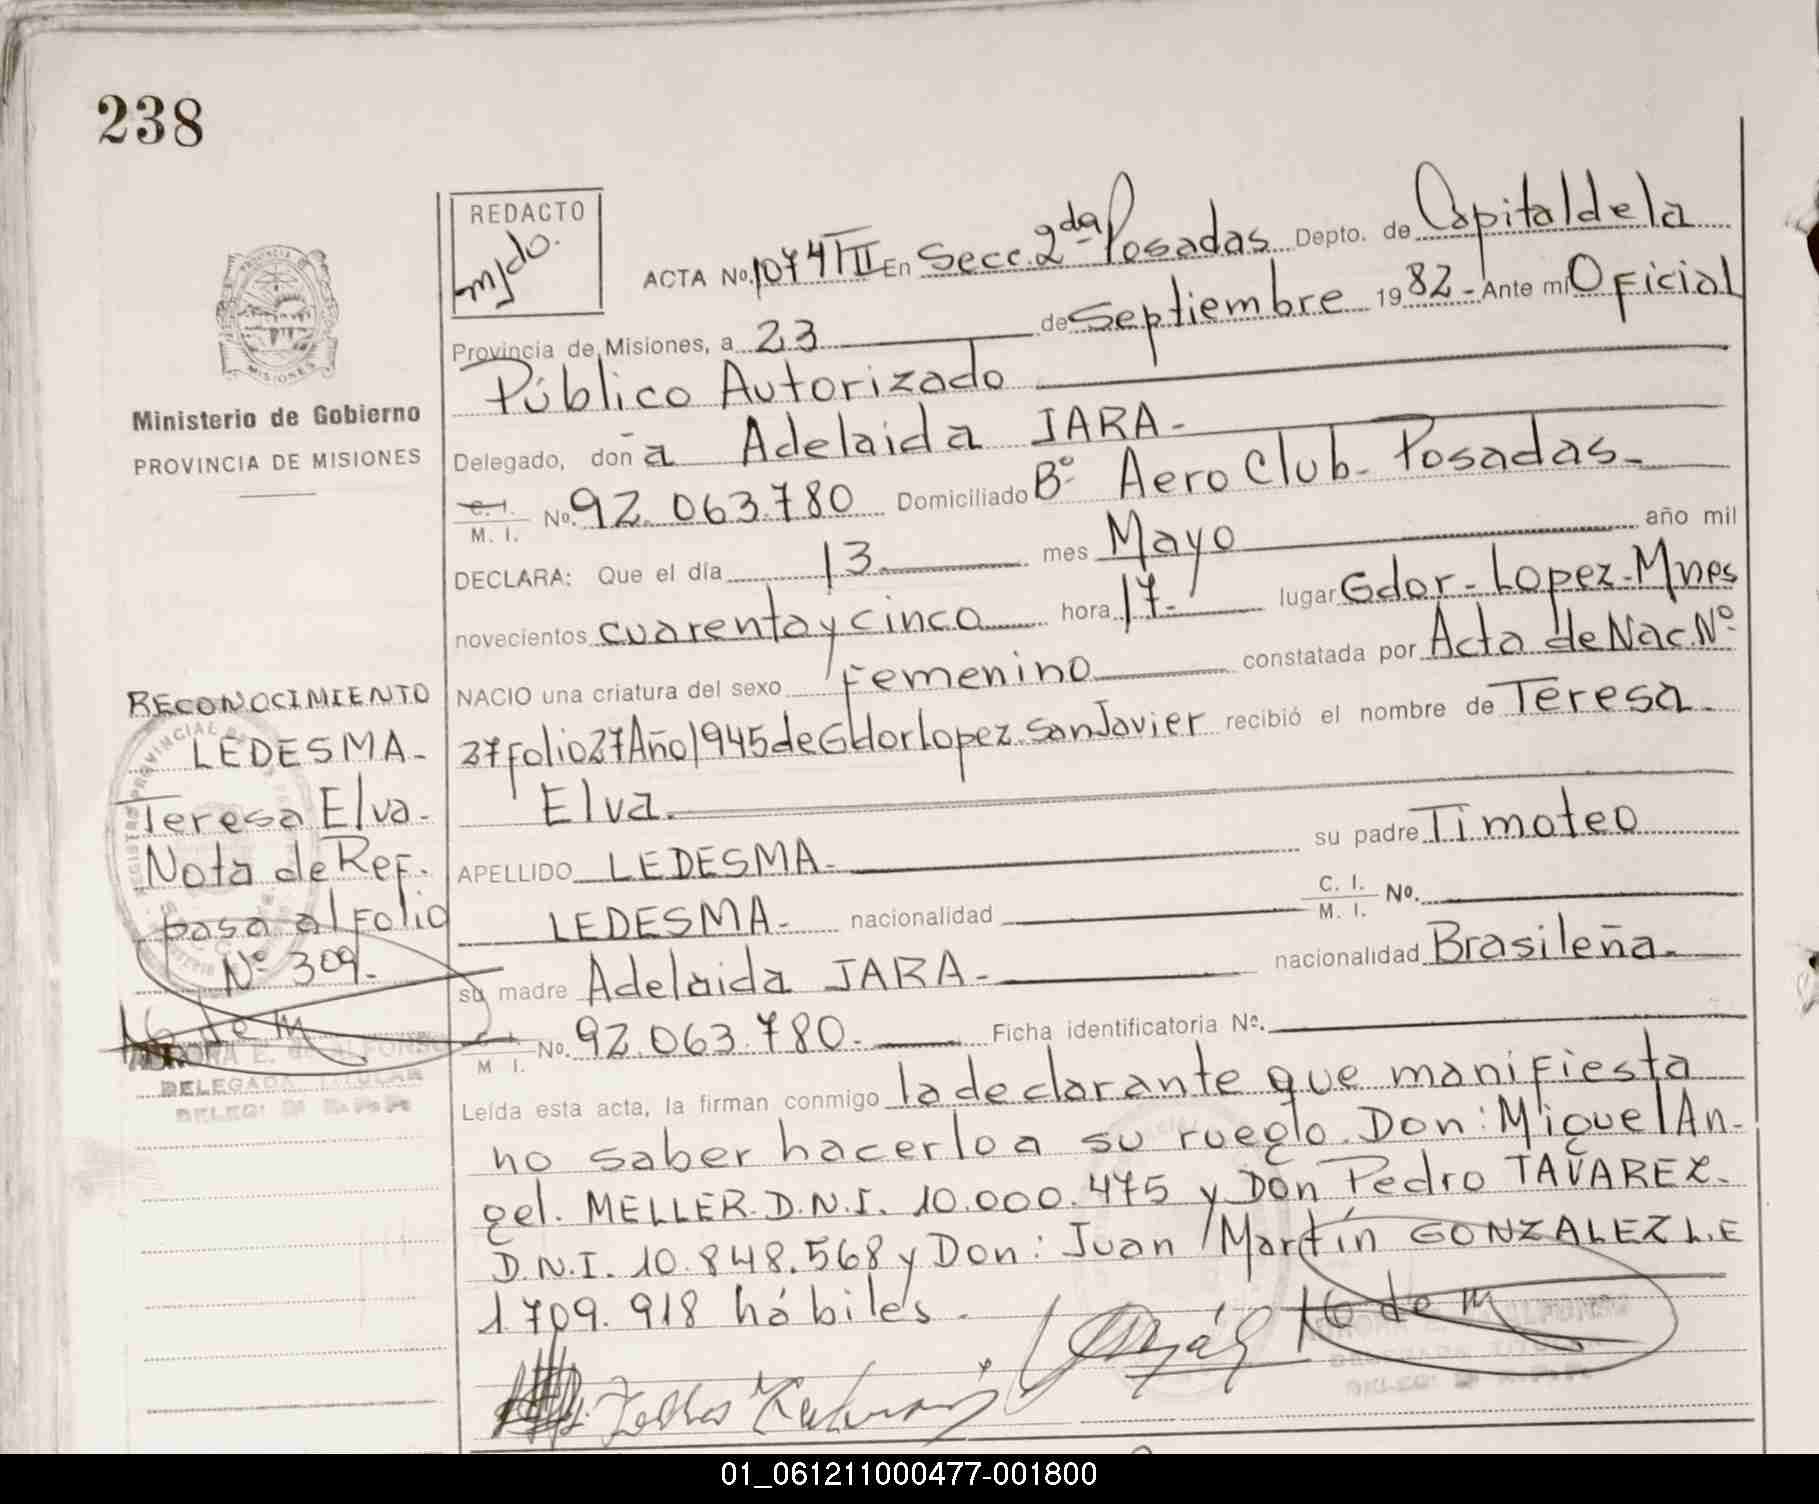 238
REDACTO
mjdo.
ACTA No. 1074 TII En Secc. 2da Posadas Depto. de Capital de la
Provincia de Misiones, a 23 de Septiembre 1982.- Ante mi Oficial
Público Autorizado
Delegado, doña Adelaida JARA.-
C. I.
M. I. No. 92.063.780 Domiciliado Bº Aero Club- Posadas.-
DECLARA: Que el día 13 mes Mayo año mil
novecientos cuarenta y cinco hora 17.- lugar Gdor-Lopez-Mnes
NACIO una criatura del sexo Femenino constatada por Acta de Nac. Nº
27 Folio 27 Año 1945 de Gdor Lopez San Javier recibió el nombre de Teresa
Elva.
APELLIDO LEDESMA.- su padre Timoteo
LEDESMA.- nacionalidad C. I.
M. I. No.
su madre Adelaida JARA.- nacionalidad Brasileña.-
C. I.
M I. No. 92.063.780.- Ficha identificatoria Nº.
Leída esta acta, la firman conmigo la declarante que manifiesta
no saber hacerlo a su ruego. Don: Miguel An-
gel. MELLER. D.N.I. 10.000.475 y Don Pedro TAVAREZ.
D.N.I. 10.848.568 y Don: Juan Martín GONZALEZ L.E
1.709.918 hábiles.
Ministerio de Gobierno
PROVINCIA DE MISIONES
RECONOCIMIENTO
LEDESMA.-
Teresa Elva.-
Nota de Ref.
pasa al Folio
Nº 309.-
DELEGADA TITULAR
01_061211000477-001800